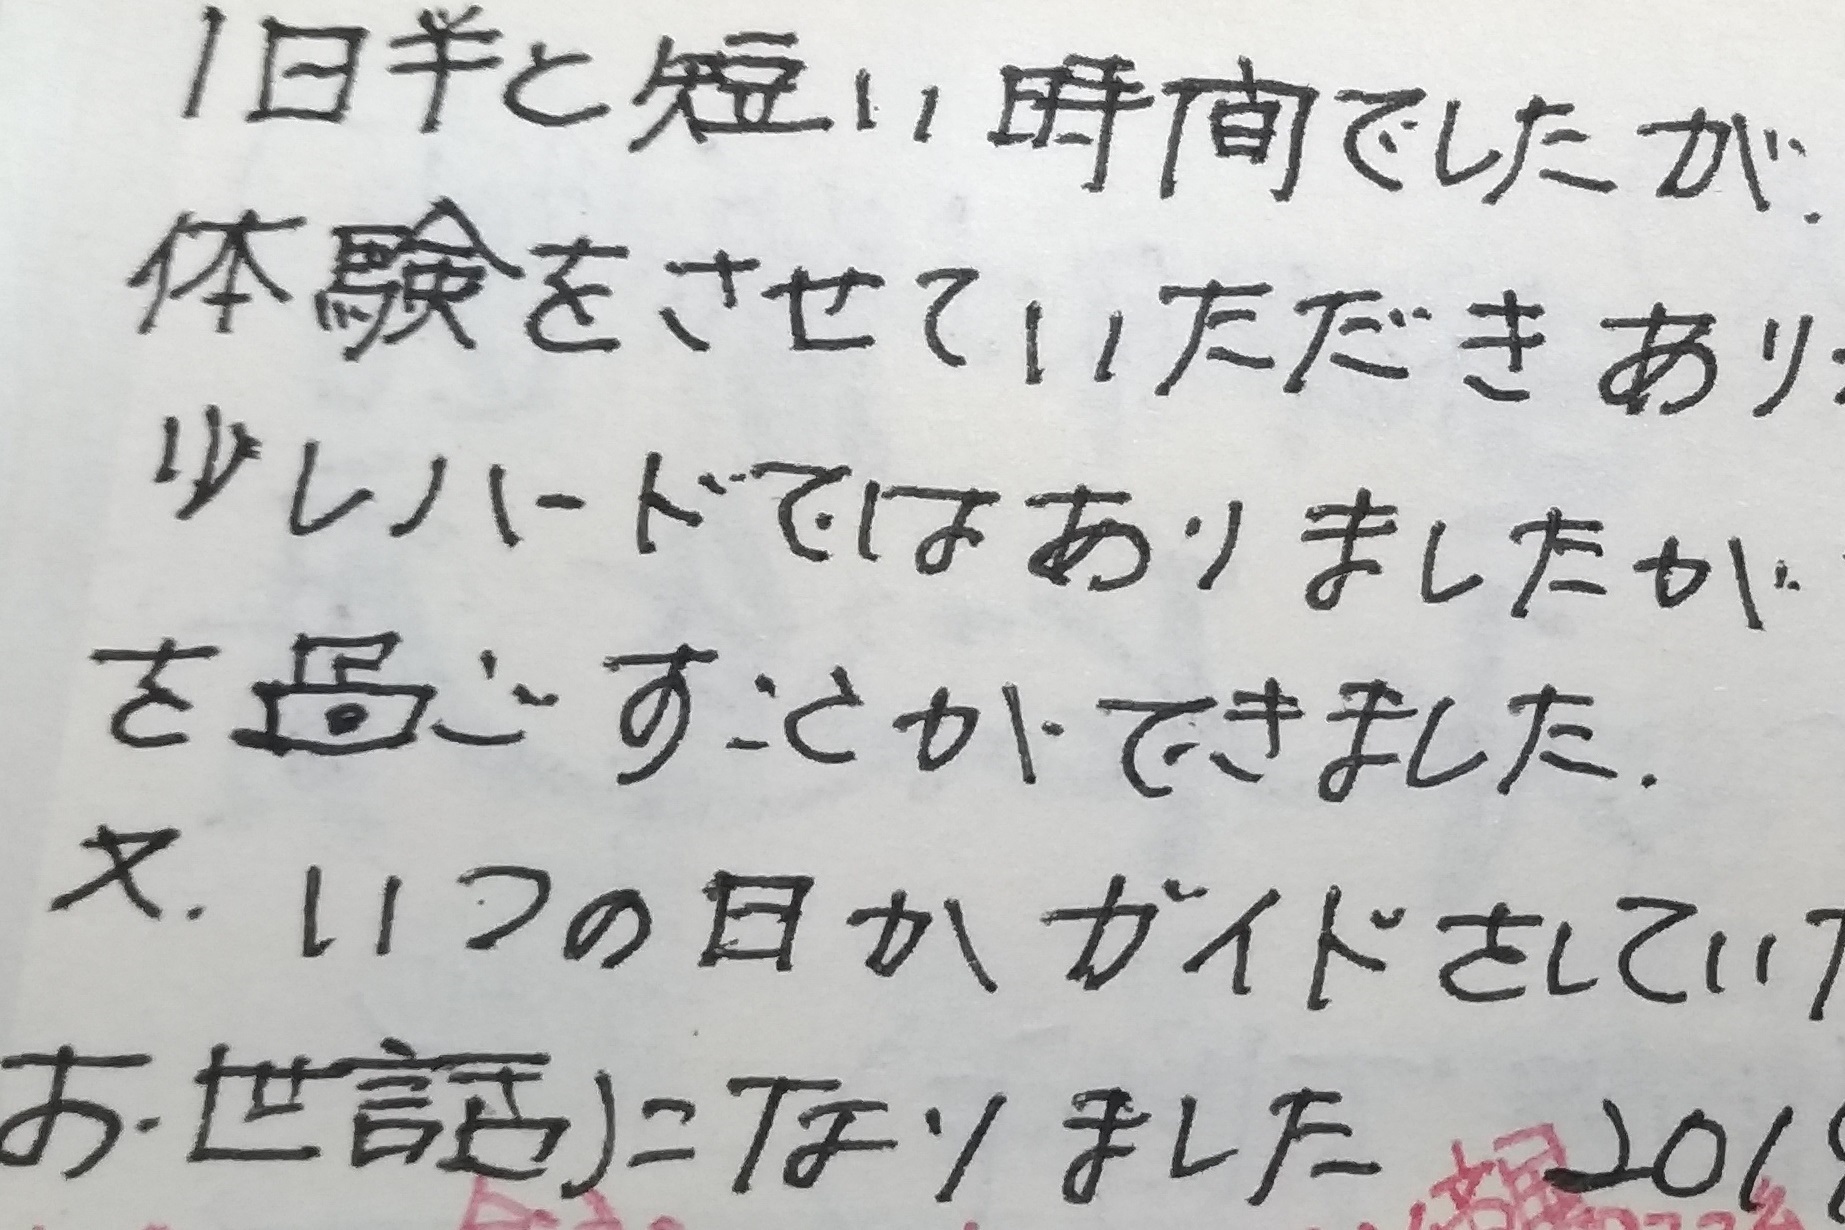 1日半と短い時間でしたが.
体験をさせていただきあり
少しハードではありましたが
を過ごすことができました.
又.いつの日かガイドをしてい
お世話になりました 201